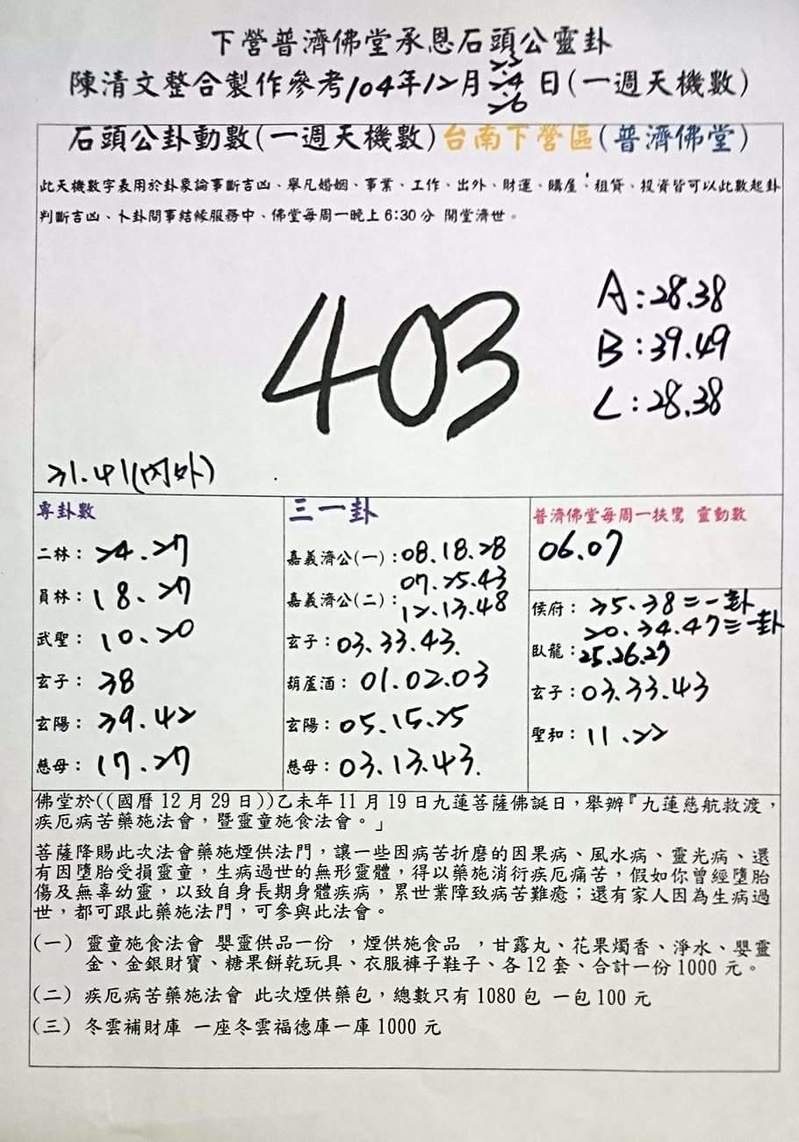 下營普濟佛堂承恩石頭公靈卦
陳清文整合製作參考104年12月22.24.26日(一週天機數)
石頭公卦動數(一週天機數)台南下營區(普濟佛堂)
此天機數字表用於卦象論事斷吉凶、舉凡婚姻、事業、工作、出外、財運、購屋、租貸、投資皆可以此數起卦
判斷吉凶、卜卦問事結緣服務中、佛堂每周一晚上6:30分 開堂濟世。
403
A:28.38
B:39.49
L:28.38
31.41(內外)
專卦數
二林：24.27
員林：18.27
武聖：10.20
玄子：38
玄陽：39.42
慈母：17.27
三一卦
嘉義濟公(一)：08.18.28
嘉義濟公(二)：07.25.43
12.13.48
玄子：03.33.43.
胡蘆酒：01.02.03
玄陽：05.15.25
慈母：03.13.43.
普濟佛堂每周一扶鸞 靈動數
06.07
侯府：35.38二一卦
20.34.47三一卦
臥龍：25.26.27
玄子：03.33.43
聖和：11.22
佛堂於((國曆12月29日))乙未年11月19日九蓮菩薩佛誕日，舉辦『九蓮慈航救渡，
疾厄病苦藥施法會，暨靈童施食法會。」
菩薩降賜此次法會藥施煙供法門，讓一些因病苦折磨的因果病、風水病、靈光病、還
有因墮胎受損靈童，生病過世的無形靈體，得以藥施消衍疾厄痛苦，假如你曾經墮胎
傷及無辜幼靈，以致自身長期身體疾病，累世業障致病苦難癒；還有家人因為生病過
世，都可跟此藥施法門，可參與此法會。
(一) 靈童施食法會 嬰靈供品一份 ，煙供施食品 ，甘露丸、花果燭香、淨水、嬰靈
金、金銀財寶、糖果餅乾玩具、衣服褲子鞋子、各12套、合計一份1000元。
(二) 疾厄病苦藥施法會 此次煙供藥包，總數只有1080包 一包100元
(三) 冬雲補財庫 一座冬雲福德庫一庫1000元